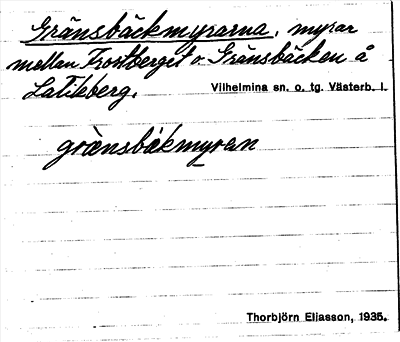 Gränsbäckmyrarna, myrar
mellan Frostberget o. Gränsbäcken å
Latikberg.
Vilhelmina sn. o. tg. Västerb. l.
grànsbäkmyran
Thorbjörn Eliasson, 1935.